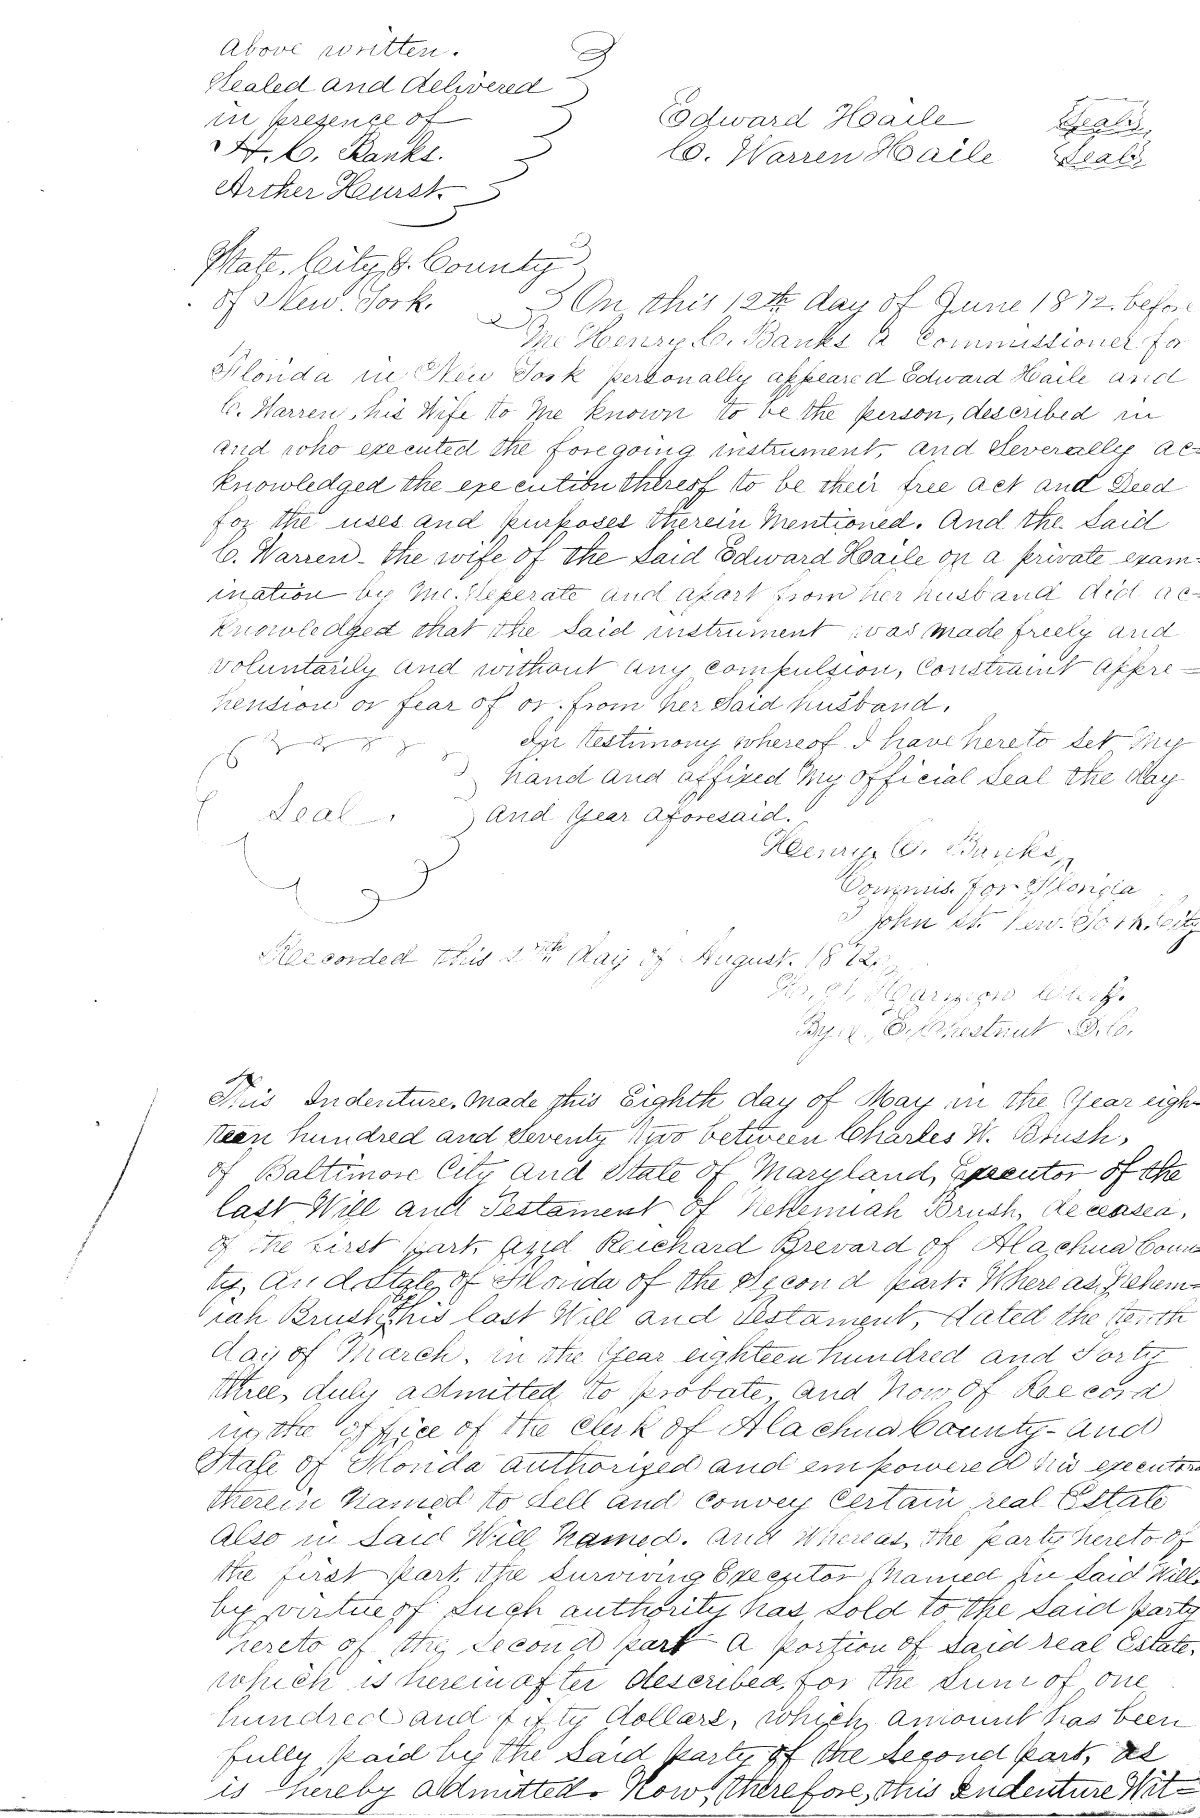 above written.
Sealed and delivered
in presence of
H. C. Banks.
Archer Hurst.
Edward Haile Seal
C. Warren Haile Seal
State, City & County
of New York. On this 12th day of June 1872. before
Me Henry C. Banks a Commissioner for
Florida in New York personally appeared Edward Haile and
C. Warren, his Wife to Me known to be the person, described in
and who executed the foregoing instrument, and Severally ac=
knowledged the execution thereof to be their free act and Deed
for the uses and purposes therein Mentioned. And the Said
C. Warren - the wife of the Said Edward Haile on a private exam=
ination by Me. Seperate and apart from her husband did ac=
knowledged that the Said instrument was made freely and
voluntarily and without any compulsion, Constraint appre=
hension or fear of or from her Said husband.
In testimony whereof I have hereto Set My
hand and affixed My official Seal the day
Seal. and Year aforesaid.
Henry C. Banks,
Commis. for Florida
3 John St. New York City
Recorded this day of August. 1872.
Clerk.
By E. Chestnut D.C.
This Indenture, made this Eighth day of May in the Year eigh-
teen hundred and Seventy Two between Charles W. Brush,
of Baltimore City and State of Maryland, Executor of the
last Will and Testament of Nehemiah Brush, deceased,
of the first part, and Reichard Brevard of Alachua Coun-
ty, and State of Florida of the Second part: Whereas, Nehem=
iah Brush, by his last Will and Testament, dated the tenth
day of March, in the Year eighteen hundred and Forty
three, duly admitted to probate, and Now of Record
in the office of the Clerk of Alachua County - and
State of Florida authorized and empowered his executors
therein Named to Sell and convey Certain real Estate
also in Said Will Named. And Whereas, the party hereto of
the first part, the surviving Executor Named in Said Will,
by virtue of Such authority has Sold to the Said party
hereto of the Second part a portion of Said real Estate,
which is hereinafter described, for the Sum of one
hundred and fifty dollars, which amount has been
fully paid by the Said party of the Second part, as
is hereby admitted. Now, therefore, this Indenture Wit=